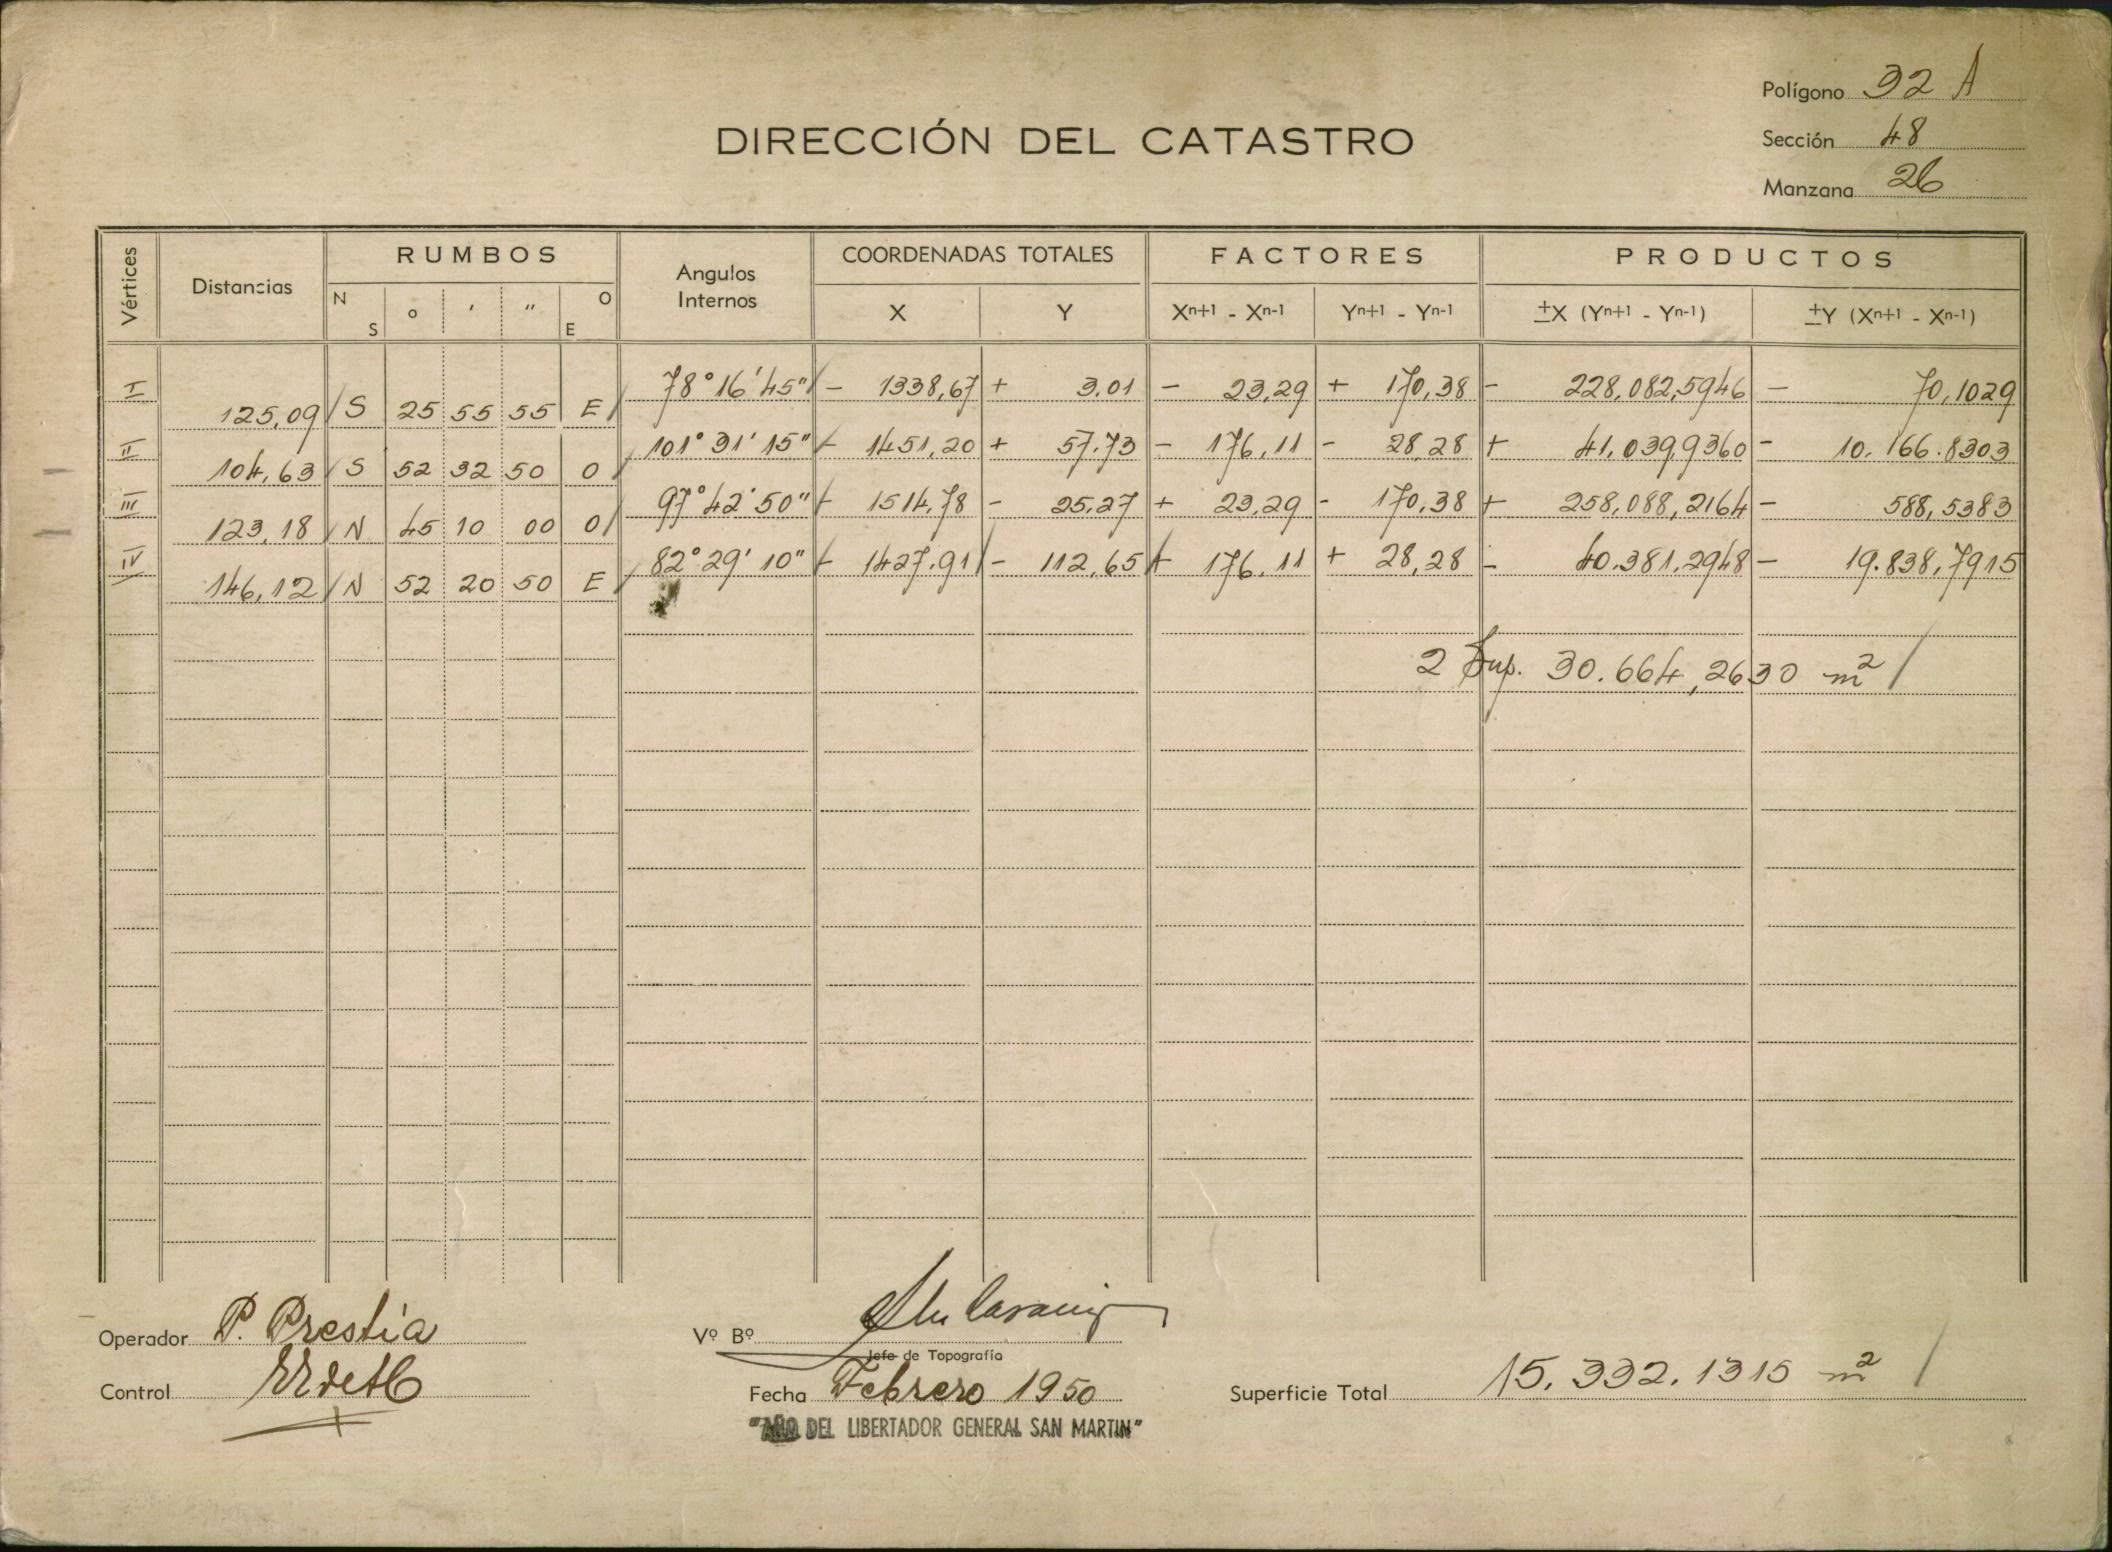 Polígono 32 A
DIRECCIÓN DEL CATASTRO
Sección 48
Manzana 26
Vértices Distancias RUMBOS Angulos Internos COORDENADAS TOTALES FACTORES PRODUCTOS
N S o ' '' O E X Y Xn+1 - Xn-1 Yn+1 - Yn-1 ±X (Yn+1 - Yn-1) ±Y (Xn+1 - Xn-1)
I 78° 16' 45" - 1338,67 + 3.01 - 23,29 + 170,38 - 228,082,5946 - 70,1029
125,09 S 25 55 55 E
II 101° 31' 15" - 1451,20 + 57.73 - 176,11 - 28,28 + 41,039,9360 - 10.166.8303
104,63 S 52 32 50 O
III 97° 42' 50" - 1514,78 - 25,27 + 23,29 - 170,38 + 258,088,2164 - 588,5383
123,18 N 45 10 00 O
IV 82° 29' 10" - 1427.91 - 112,65 + 176,11 + 28,28 - 40.381,2948 - 19.838,7915
146,12 N 52 20 50 E
2 Sup. 30.664,2630 m²
Operador P. Prestia
Vº Bº
Jefe de Topografía
Control
Fecha Febrero 1950
Superficie Total 15.332.1315 m²
"AÑO DEL LIBERTADOR GENERAL SAN MARTIN"